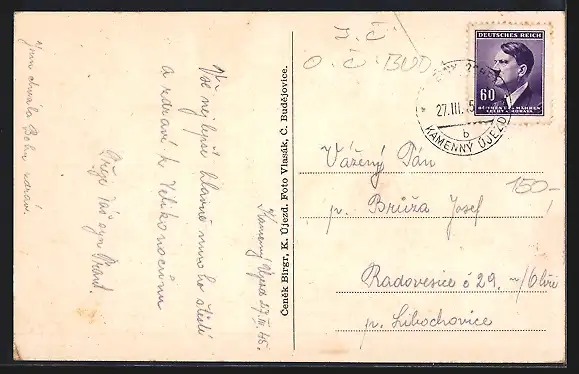 Vše nejlepší hlavně mnoho štěstí
a zdraví k Velikonocům
Přeje Váš syn
Jsem chvála Bohu zdráv.
Kamenný Újezd 27/III. 45.
Čeněk Birgr, K. Újezd. Foto Vlasák, Č. Budějovice.
J. Č.
O. Č. BUD
DEUTSCHES REICH
60
BÖHMEN u. MÄHREN
ČECHY a MORAVA
27.III. 5
b
KAMENNÝ ÚJEZD
Vážený Pán
150-
p. Brůža Josef
Radovesice č 29. n/Ohří
p. Libochovice